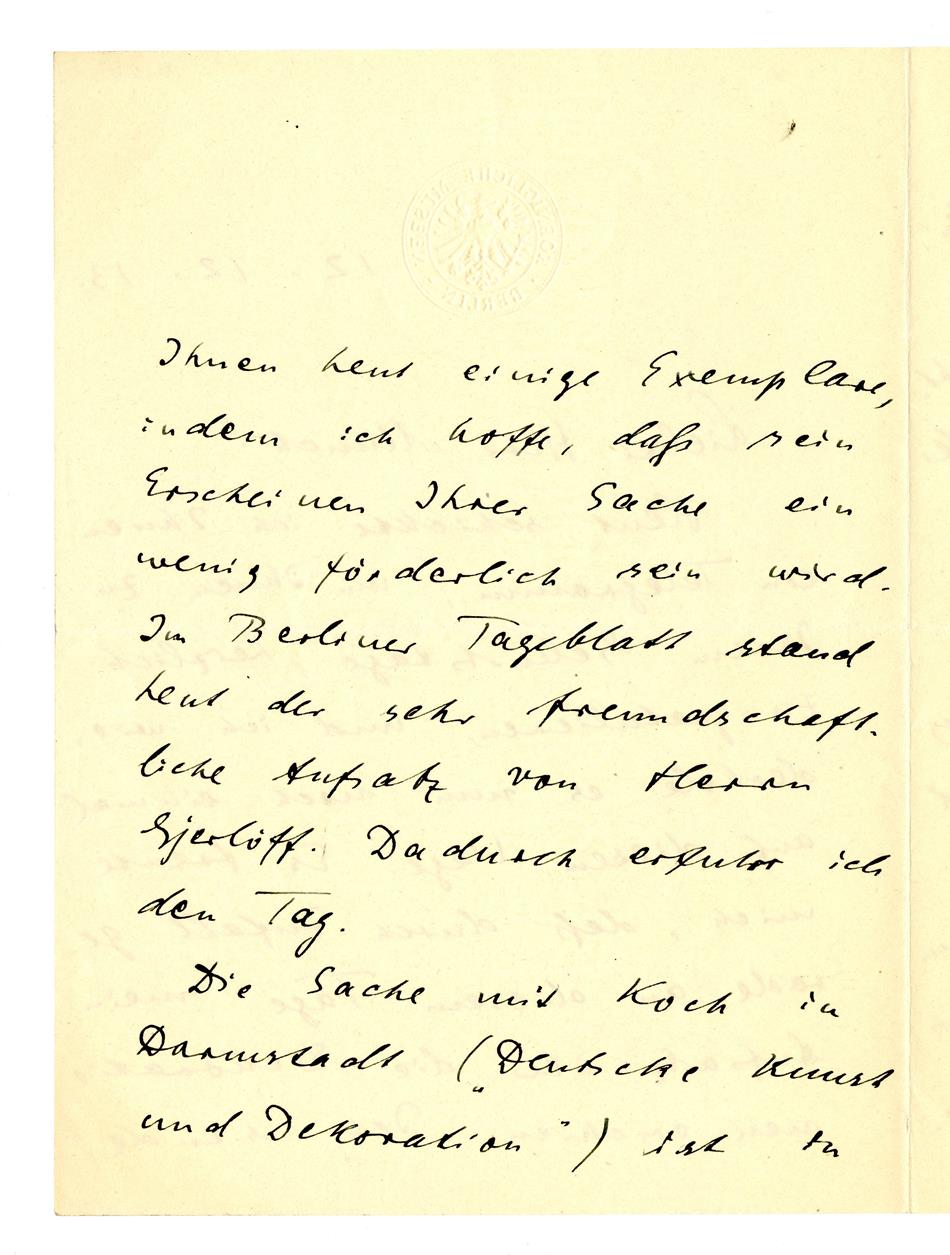 Ihnen heut einige Exemplare,
indem ich hoffe, daß sein
Erscheinen Ihrer Sache ein
wenig förderlich sein wird.
Im Berliner Tageblatt stand
heut der sehr freundschaft-
liche Aufsatz von Herrn
Gjerlöff. Dadurch erfuhr ich
den Tag.
Die Sache mit Koch in
Darmstadt („Deutsche Kunst
und Dekoration") ist in